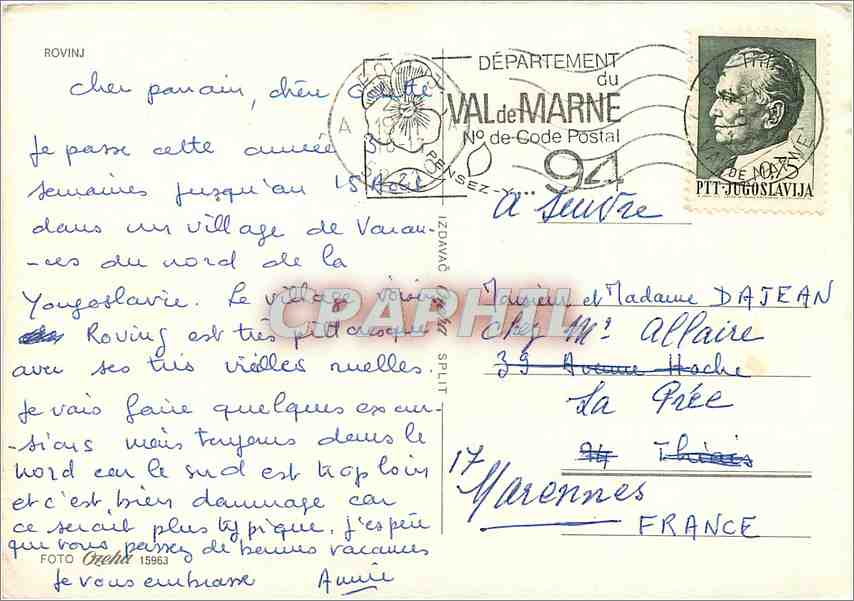 ROVINJ
cher parrain, chère
Je passe cette année
semaines jusqu'au 15 Août
dans un village de Vacan-
-ces du nord de la
Yougoslavie. Le village voisin
Roving est très pittoresque
avec ses très vieilles ruelles.
Je vais faire quelques excur-
-sions mais toujours dans le
nord car le sud est trop loin
et c'est bien dommage car
ce serait plus typique. j'espère
que vous passez de bonnes vacances
Je vous embrasse Annie
FOTO Ozeha 15963
IZDAVAČ Ozeha SPLIT
DÉPARTEMENT
du
VAL de MARNE
No de Code Postal
94
PENSEZ-Y...
VAL DE MARNE
0.75
PTT-JUGOSLAVIJA
A suivre
Monsieur et Madame DAJEAN
chez Mr Allaire
39 Avenue Hoche
La Prée
94 Thiais
17 Marennes
FRANCE
CPARPHIL